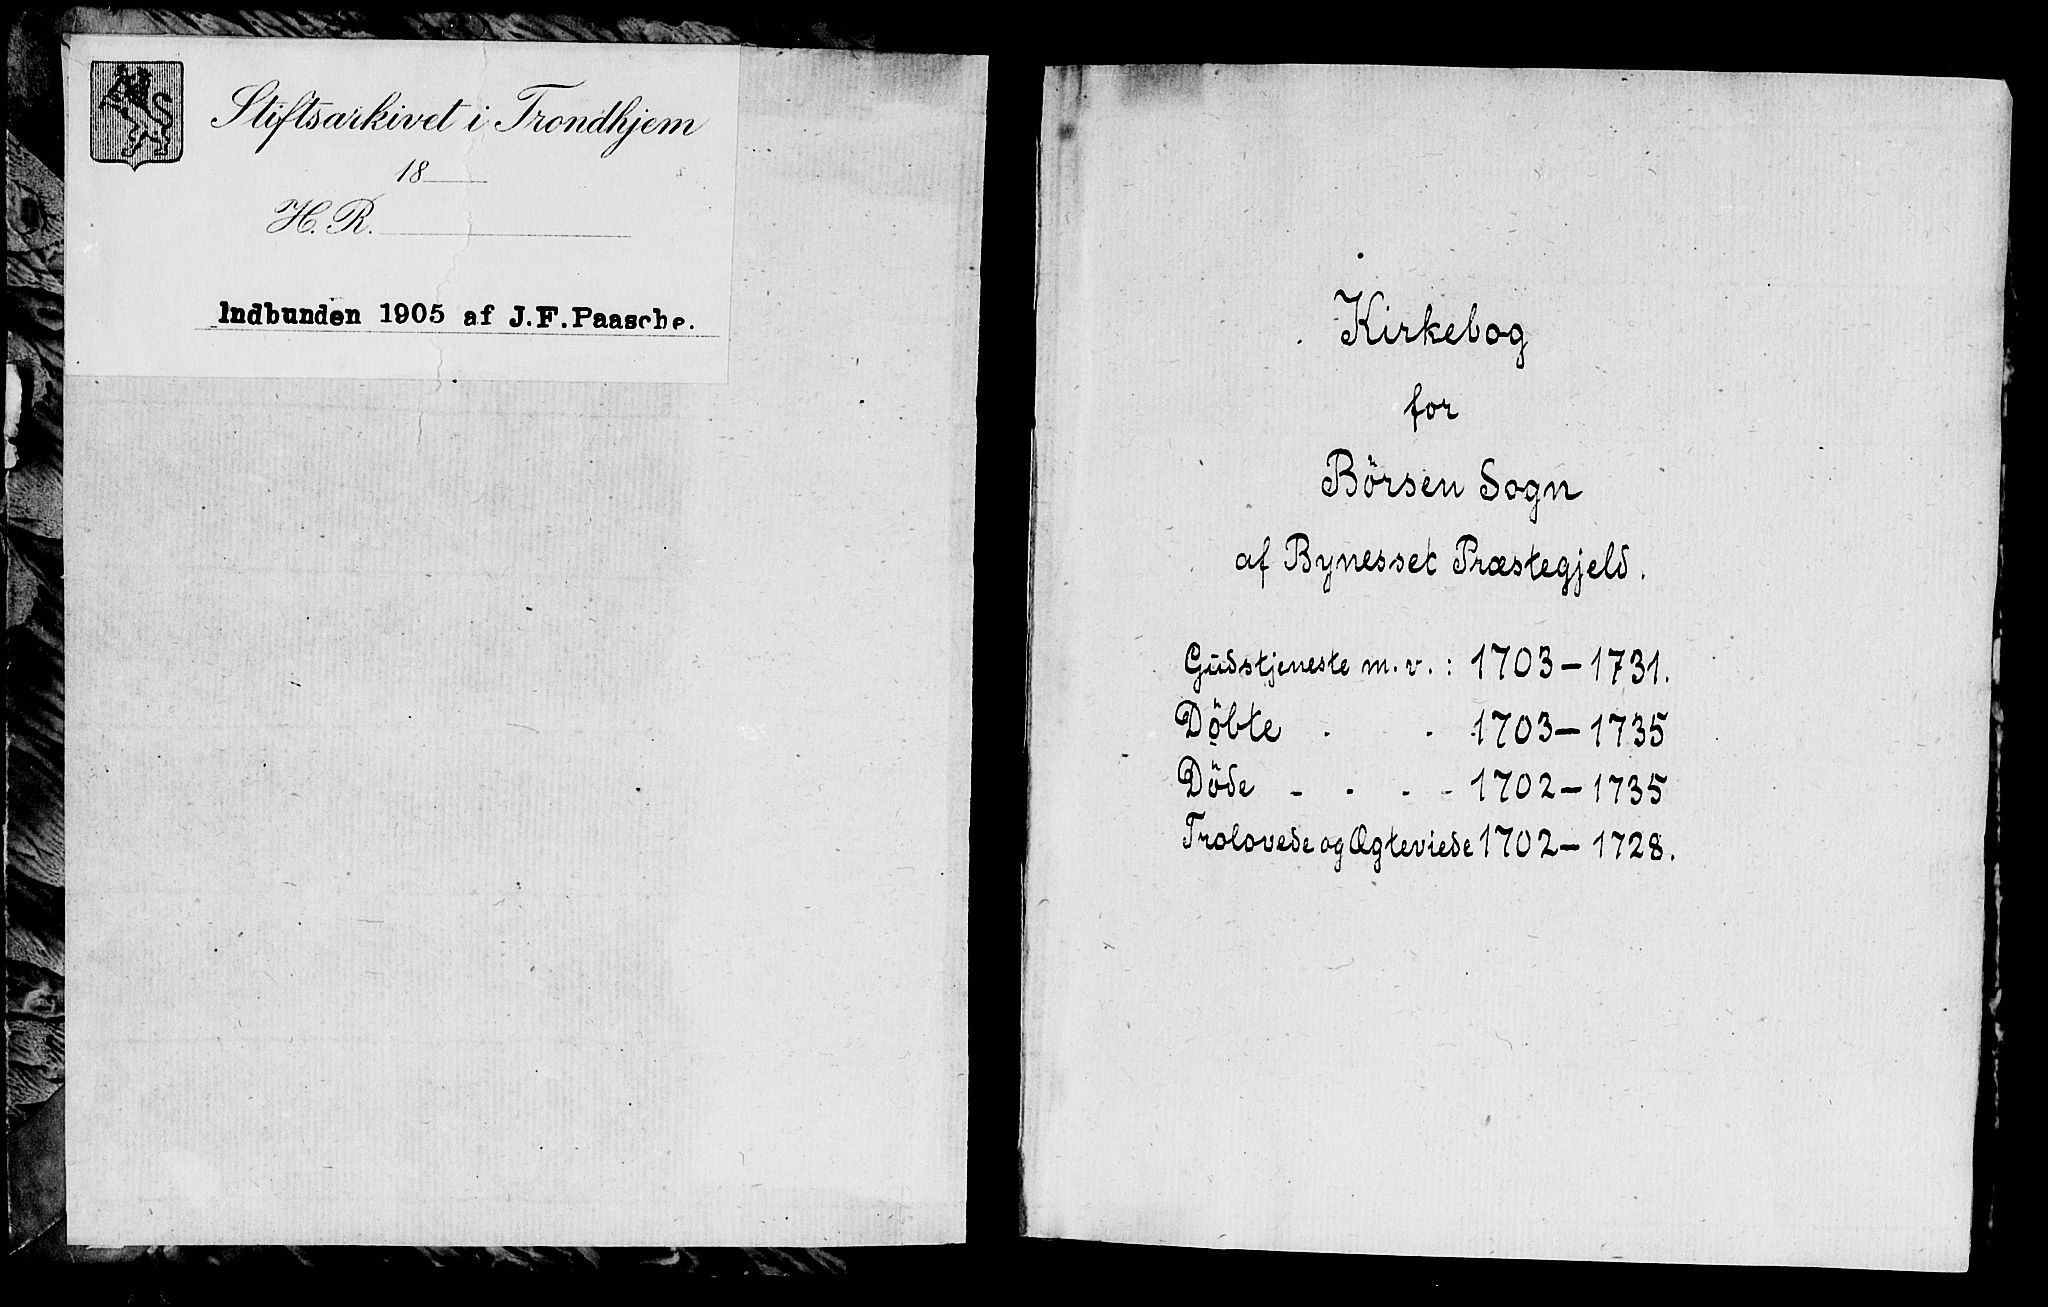 Stiftsarkivet i Trondhjem
18
H. R.
Indbunden 1905 af J.F.Paasche.
Kirkebog
for
Börsen Sogn
af Bynesset Præstegjeld.
Gudstjeneste m.v. : 1703 – 1731.
Döbte . . 1703 – 1735
Döde - - . - 1702 – 1735
Trolovede og Ægteviede 1702 – 1728.